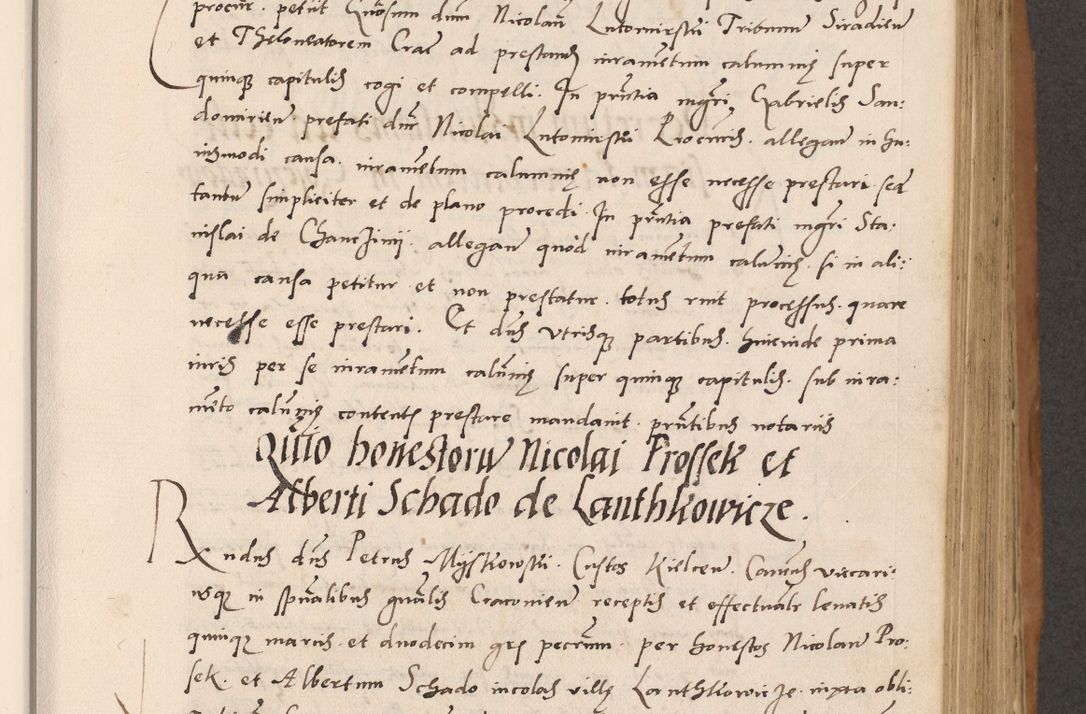 procur. petiit Gnosum dnm Nicolau Lutomirski Tribunum Siradien
et Theloneatorem Crac ad prestand iuramentum calumnię super
quinque capitulis cogi et compelli. In prntia mgri Gabrielis San:
domirien prefati dni Nicolai Lutomirski Procuris. allegan in hu:
iusmodi causa. iuramentum calumnię non esse necesse prestari sed
tantu simpliciter et de plano procedi. In prntia prefati mgri Sta:
nislai de Chanczinij. allegan quod iuramentum calumnię. si in ali:
qua causa petitur et non prestatur. totus ruit processus. quare
necesse esse prestari. Et dns utrisque partibus. hincinde prima
iuris per se iuramentum calumnię super quinque capitulis. sub iura:
mento calumnię contentis prestare mandavit. prntibus notariis
Quito honestoru Nicolai Prossek et
Alberti Schado de Lanthkowicze.
Rndus dns Petrus Myskowski. Custos Kielcen. Canonus vicari:
usque in spualibus gnalis Cracovien receptis et effectualr levatis
quinque marcis et duodecim gris pecum. per honestos Nicolau Pro:
sek. et Albertum Schado incolas villę Lanthkowicze. iuxta obli: